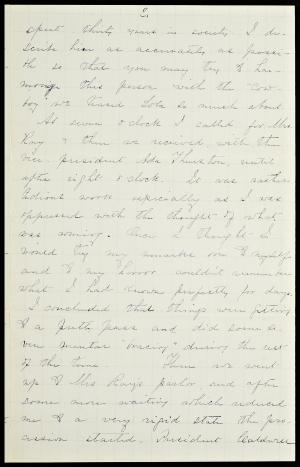 2
spent thirty years in society. I de-
scribe him as accurately as possi-
ble so that you may try to har-
monize this person with the "Cow-
boy" we teased Lola so much about.
At seven o'clock I called for Mrs.
Ray & then we received, with the
vice president Ada Thurston, until
after eight o'clock. It was
work especially as I was
oppressed with the thought of what
was coming. Once I thought I
would try my remarks over to myself
and to my horror couldn't remember
what I had known perfectly for days.
I concluded that things were getting
to a pretty pass and did some se-
vere mental "bracing" during the rest
of the time. Then we went
up to Mrs Ray's parlor, and after
some more waiting which reduced
me to a very rigid state the pro-
cession started. President